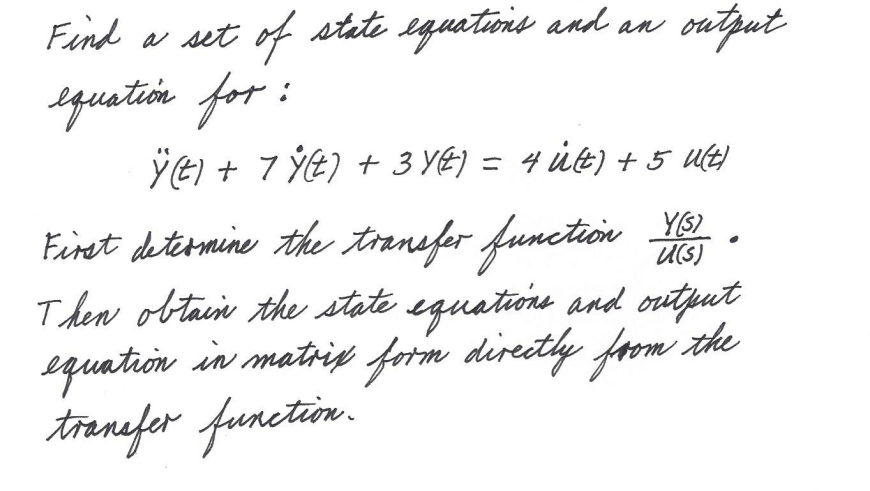 Find a set of state equations and an output
equation for :
ÿ(t) + 7 ẏ(t) + 3 y(t) = 4 u̇(t) + 5 u(t)
First determine the transfer function Y(s)/U(s) .
Then obtain the state equations and output
equation in matrix form directly from the
transfer function.